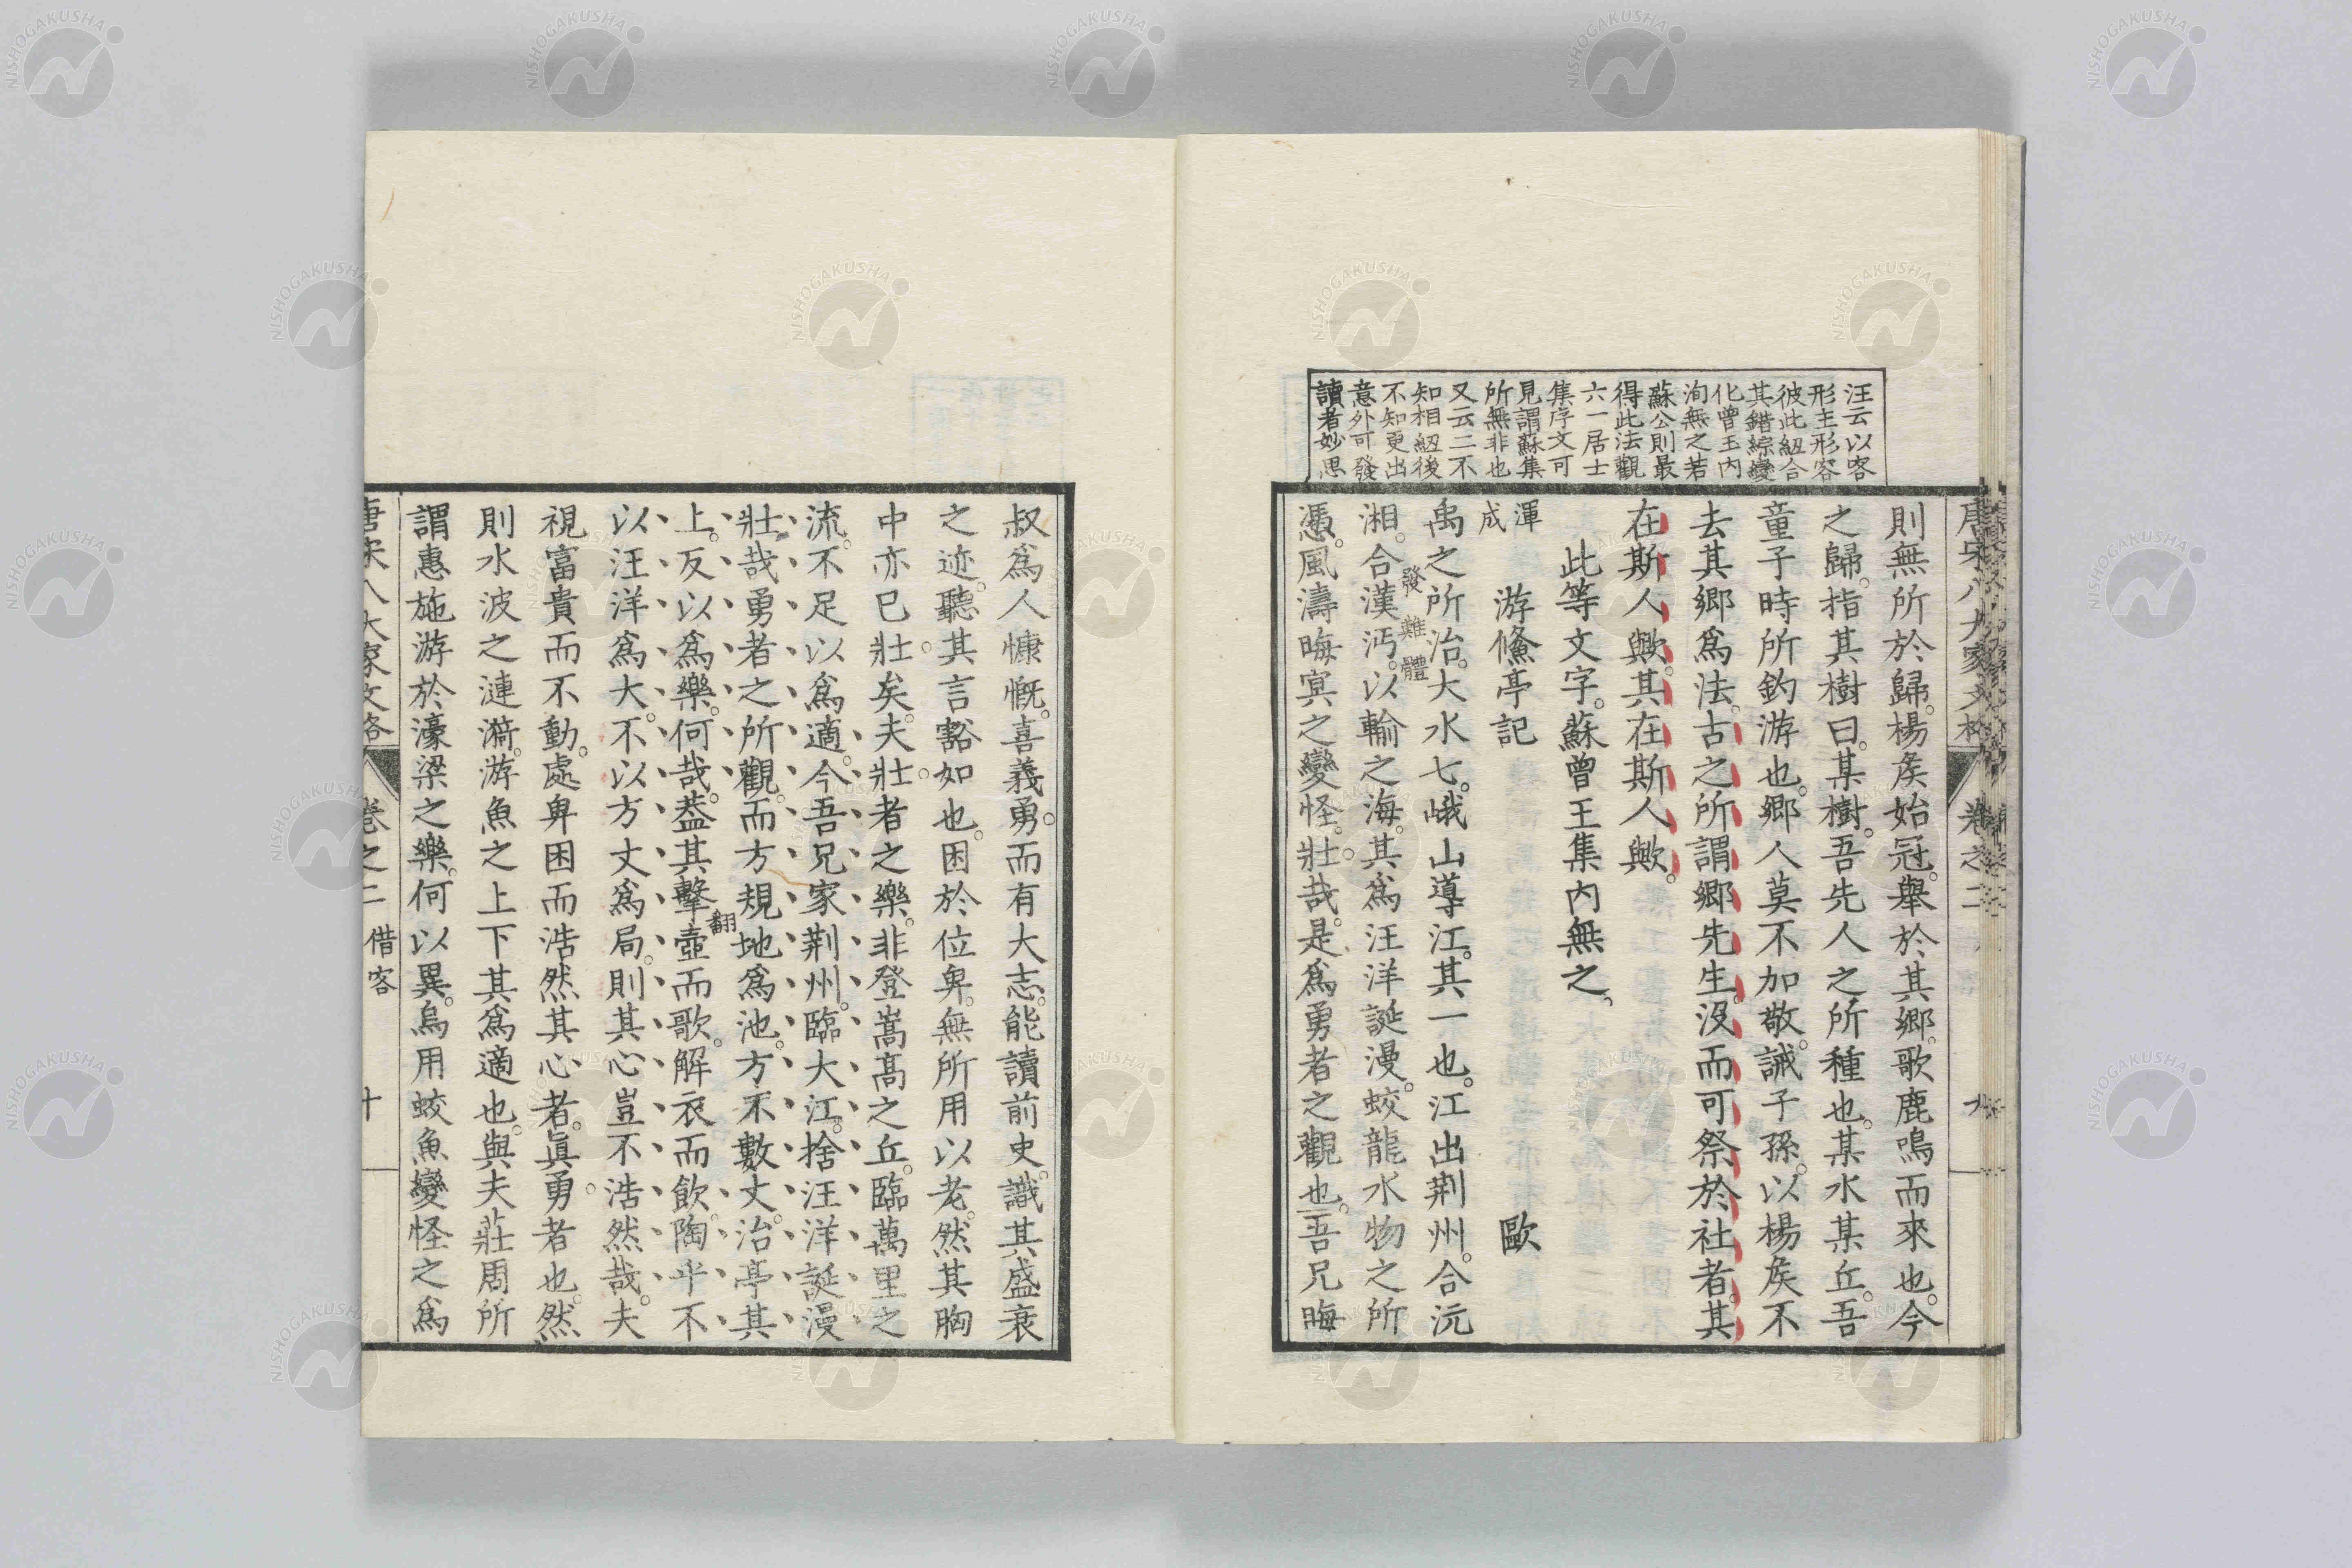 汪云以客
形主形客
彼此紐合
其錯綜變
化曾王內
洵無之若
蘇公則最
得此法觀
六一居士
集序文可
見謂蘇集
所無非也
又云二不
知相紐後
不知更出
意外可發
讀者妙思
則無所於歸。楊矦始冠。舉於其鄉。歌鹿鳴而來也。今
之歸。指其樹曰。某樹。吾先人之所種也。某水某丘。吾
童子時所釣游也。鄉人莫不加敬。誡子孫。以楊矦不
去其鄉爲法。古之所謂鄉先生。沒而可祭於社者。其
在斯人歟。其在斯人歟。
此等文字。蘇曾王集內無之。
渾成
游鯈亭記 歐
禹之所治。大水七。岷山導江。其一也。江出荆州。合沅
發難體
湘。合漢沔。以輸之海。其爲汪洋誕漫。蛟龍水物之所
憑。風濤晦冥之變怪。壯哉。是爲勇者之觀也。吾兄晦
唐宋八大家文格 卷之二 九
叔爲人慷慨。喜義勇。而有大志。能讀前史。識其盛衰
之迹。聽其言豁如也。困於位卑。無所用以老。然其胸
中亦已壯矣。夫壯者之樂。非登嵩高之丘。臨萬里之
流。不足以爲適。今吾兄家荆州。臨大江。捨汪洋誕漫
壯哉勇者之所觀。而方規地爲池。方不數丈。治亭其
翻
上。反以爲樂。何哉。葢其擊壺而歌。解衣而飲。陶乎不
以汪洋爲大。不以方丈爲局。則其心豈不浩然哉。夫
視富貴而不動。處卑困而浩然其心者。眞勇者也。然
則水波之漣漪。游魚之上下。其爲適也。與夫莊周所
謂惠施游於濠梁之樂。何以異。烏用蛟魚變怪之爲
唐宋八大家文格 卷之二 借客 十
NISHOGAKUSHA